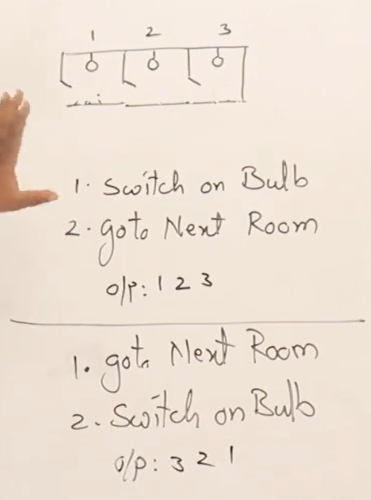 1 2 3
1. Switch on Bulb
2. goto Next Room
o/p: 1 2 3
1. goto Next Room
2. Switch on Bulb
o/p: 3 2 1